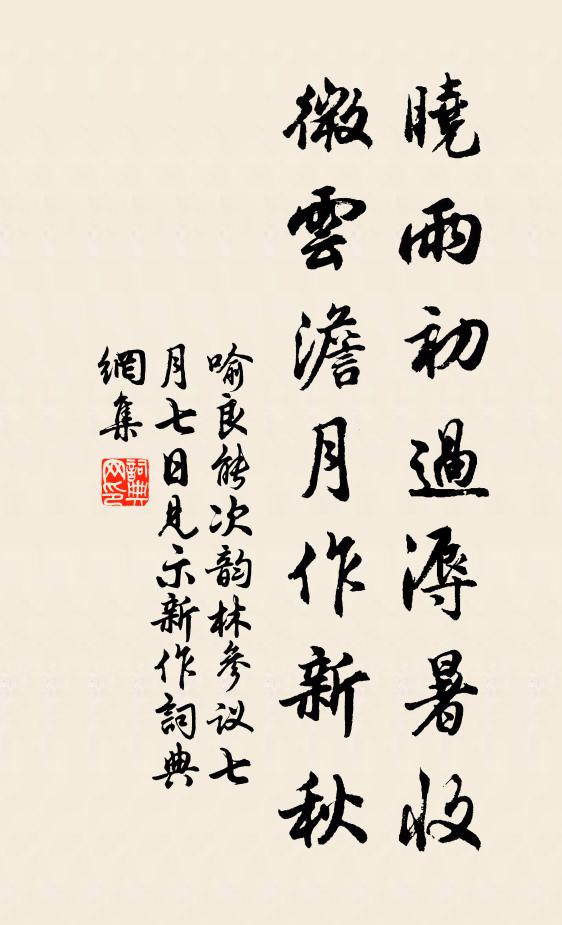 曉雨初過溽暑收
微雲澹月作新秋
喻良能次韵林參议七
月七日見示新作詞典
網集
詞典网印